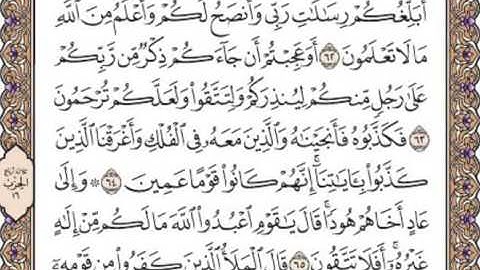 أُبَلِّغُكُمْ رِسَٰلَٰتِ رَبِّى وَأَنصَحُ لَكُمْ وَأَعْلَمُ مِنَ ٱللَّهِ
مَا لَا تَعْلَمُونَ ٦٢ أَوَعَجِبْتُمْ أَن جَآءَكُمْ ذِكْرٌ مِّن رَّبِّكُمْ
عَلَىٰ رَجُلٍ مِّنكُمْ لِيُنذِرَكُمْ وَلِتَتَّقُوا۟ وَلَعَلَّكُمْ تُرْحَمُونَ
٦٣ فَكَذَّبُوهُ فَأَنجَيْنَٰهُ وَٱلَّذِينَ مَعَهُۥ فِى ٱلْفُلْكِ وَأَغْرَقْنَا ٱلَّذِينَ
كَذَّبُوا۟ بِـَٔايَٰتِنَآ إِنَّهُمْ كَانُوا۟ قَوْمًا عَمِينَ ٦٤ ۞ وَإِلَىٰ
عَادٍ أَخَاهُمْ هُودًا ۗ قَالَ يَٰقَوْمِ ٱعْبُدُوا۟ ٱللَّهَ مَا لَكُم مِّنْ إِلَٰهٍ
غَيْرُهُۥٓ ۚ أَفَلَا تَتَّقُونَ ٦٥ قَالَ ٱلْمَلَأُ ٱلَّذِينَ كَفَرُوا۟ مِن قَوْمِهِۦٓ
الحزب
١٦